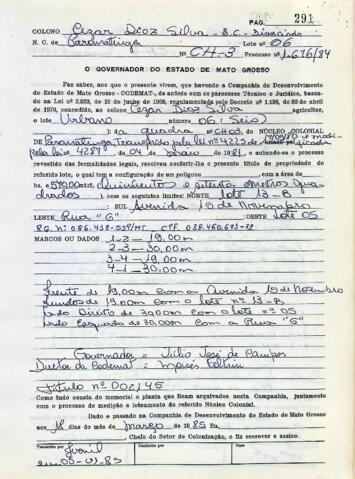 PAG. 291
COLONO Cezar Dioz Silva - B.C. Divorciado
N. C. de Paranatinga Lote nº 06
Nº CH-3 Processo nº 1.616/84
O GOVERNADOR DO ESTADO DE MATO GROSSO
Faz saber, aos que a presente virem, que havendo a Companhia de Desenvolvimento
do Estado de Mato Grosso - CODEMAT-, de acordo com os pareceres Técnico e Jurídico, basea-
do na Lei nº 2.933, de 10 de junho de 1969, regulamentada pelo Decreto nº 1.138, de 30 de abril
de 1970, concedido, ao colono Cezar Dioz Silva agricultor,
o lote Urbano número 06 (Seis)
da quadra nº CH03, do NÚCLEO COLONIAL
DE Paranatinga, Transferido pela lei nº 4225 de
pela lei nº 4287, de 04 de 1981, e achando-se o processo
revestido das formalidades legais, resolveu conferir-lhe o presente título de propriedade do
referido lote, o qual tem a configuração de um polígono ,com a área de
ha. e 570,00 mts2, (Quinhentos e setenta metros qua-
drados), com os seguintes limites: NORTE lote 13-B
: SUL Avenida 15 de Novembro
LESTE Rua "G" :OESTE Lote 05
MARCOS OU DADOR
1-2 — 19,00m
2-3 — 30,00m
3-4 — 19,00m
4-1 — 30,00m
Frente de 19,00m com a Avenida 15 de Novembro
Fundos de 19,00m com o lote nº 13-B
Lado Direito de 30,00m com o lote nº 05
Lado Esquerdo de 30,00m com a Rua "G"
Governador = Júlio José de Campos
Diretor da Codemat = Moisés Feltrin
Título nº 002145
Como tudo consta do memorial e planta que ficam arquivados nesta Companhia, juntamente
com o processo de medição e loteamento do referido Núcleo Colonial.
Dado e passado na Companhia de Desenvolvimento do Estado de Mato Grosso
aos dias do mês de março de 1985 Eu,
, Chefe do Setor de Colonização, o fiz escrever e assino.
Transcrito por
Conferido por
Visto